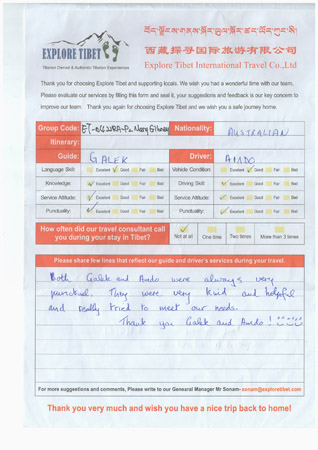 EXPLORE TIBET
Tibetan Owned & Authentic Tibetan Experiences
西藏探寻国际旅游有限公司
Explore Tibet International Travel Co.,Ltd
Thank you for choosing Explore Tibet and supporting locals. We wish you had a wonderful time with our team.
Please evaluate our services by filling this form and seal it, your suggestions and feedback is our key concern to
improve our team. Thank you again for choosing Explore Tibet and we wish you a safe journey home.
Group Code: Nationality: AUSTRALIAN
Itinerary:
Guide: GALEK Driver: AMDO
Language Skill: Excellent Good Fair Bad Vehicle Condition: Excellent Good Fair Bad
Knowledge: Excellent Good Fair Bad Driving Skill: Excellent Good Fair Bad
Service Attitude: Excellent Good Fair Bad Service Attitude: Excellent Good Fair Bad
Punctuality: Excellent Good Fair Bad Punctuality: Excellent Good Fair Bad
How often did our travel consultant call
you during your stay in Tibet?
Not at all One time Two times More than 3 times
Please share few lines that reflect our guide and driver's services during your travel.
Both Galek and Amdo were always very
punctual. They were very kind and helpful
and really tried to meet our needs.
Thank you Galek and Amdo!
For more suggestions and comments, Please write to our Genearal Manager Mr Sonam- sonam@exploretibet.com
Thank you very much and wish you have a nice trip back to home!